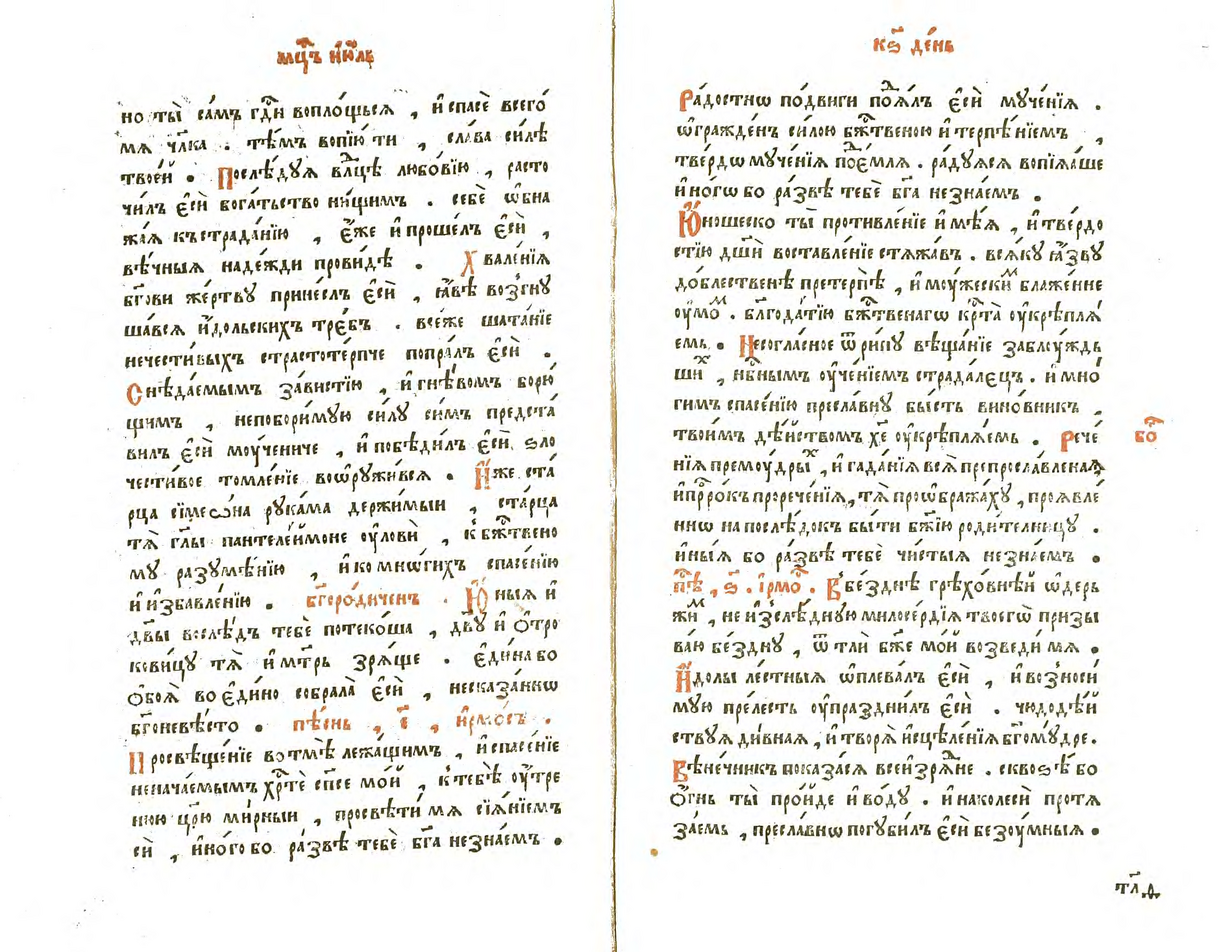 мц҃ъ і҆ю҆ль
но ты̀ са́мъ гдⷭ҇и вопло́щься , и҆ спасѐ всего́
мѧ чл҃ка . тѣ́мъ вопїю́ ти , сла́ва си́лѣ
твое́й . Послѣ́дуѧ влⷣцѣ любо́вїю , расто
чи́лъ є҆сѝ бога́тьство ни́щимъ . себе́ ѡ҆бна
жа́ѧ къ страда́нїю , є҆́же и҆ проше́лъ є҆сѝ ,
вѣ́чныѧ наде́жди прови́дѣ . Хвале́нїѧ
бг҃ови же́ртву прине́слъ є҆сѝ , ꙗ҆́вѣ возгну
ша́всѧ и҆́дольскихъ тре́бъ . все́же шата́нїе
нечести́выхъ страстоте́рпче попра́лъ є҆сѝ .
Снѣ́даемымъ за́вистїю , и҆ гнѣ́вомъ борю́
щимъ , непобори́мую си́лу си́мъ предста́
вилъ є҆сѝ моу́чениче , и҆ побѣди́лъ є҆сѝ ѕло
чести́вое томле́нїе воѡ҆ружи́всѧ . И҆́же ста́
рца сїмеѡ́на рука́ма держи́мыи , ста́рца
тѧ̀ гл҃ы пантелеи́моне оу҆ловѝ , к бжⷭ҇твено
му разумѣ́нїю , и҆ ко мнѡ́гихъ спасе́нїю
и҆ и҆збавле́нїю . бг҃оро́диченъ . Ю҆́ныѧ и҆
дв҃ы вослѣ́дъ тебѐ потеко́ша , дв҃у и҆ ѻ҆тро
кови́цу тѧ̀ и҆ мт҃рь зрѧ́ще . є҆ди́на бо
ѻ҆боѧ̀ во є҆ди́но собрала̀ є҆сѝ , несказа́ннѡ
бг҃оневѣ́сто . пѣ́снь , є҃ , і҆рмо́съ .
Просвѣще́нїе во тмѣ̀ лежа́щимъ , и҆ спасе́нїе
неча́емымъ хрⷭ҇тѐ сп҃се мо́й , к тебѣ̀ оу҆́тре
нюю цр҃ю ми́рныи , просвѣти́ мѧ сїѧ́нїемъ
сѝ , и҆но́го бо ра́звѣ тебѐ бг҃а не зна́емъ .
к҃ѕ де́нь
Ра́достнѡ по́двиги под̾ѧ́лъ є҆сѝ муче́нїѧ .
ѡ҆гражде́нъ си́лою бжⷭ҇твеною и҆ терпѣ́нїемъ ,
тве́рдѡ муче́нїѧ под̾е́млѧ . ра́дуѧсѧ вопїѧ́ше
и҆но́гѡ бо ра́звѣ тебѐ бг҃а не зна́емъ .
Ю҆́ношеско ты̀ противле́нїе и҆мѣ́ѧ , и҆ тве́рдо
стїю дш҃и воставле́нїе стѧжа́въ . всѧ́ку ꙗ҆́зву
до́блественѣ претерпѣ̀ , и҆ моу́жескиⷨ блаже́нне
оу҆моⷨ . благода́тїю бжⷭ҇твенагѡ крⷭ҇та̀ оу҆крѣплѧ́
емь . Несогла́сное ѿри́ну вѣща́нїе заблоу́ждь
шиⷯ , нбⷭ҇нымъ оу҆че́нїемъ страда́лецъ . и҆ мно́
гимъ спасе́нїю пресла́вну бы́сть вино́вникъ ,
твои́мъ дѣ́йствомъ хе҃ оу҆крѣплѧ́емь . Рече́ боⷢ
нїѧ премоу́дрыⷯ , и҆ гада́нїѧ всѧ̀ препросла́вленаѧ
и҆ прⷪ҇рокъ прорече́нїѧ , тѧ̀ проѡ҆бража́ху , проѧвле́
ннѡ на послѣ́докъ бы́ти бж҃їю роди́тельницу .
и҆ны́ѧ бо ра́звѣ тебѐ чи́стыѧ не зна́емъ .
пⷭ҇ѣ , ѕ҃ . і҆рмоⷭ҇ . В бе́зднѣ грѣхо́внѣй ѡ҆держ
жиⷨ , неи҆зслѣ́дную милосе́рдїѧ твоегѡ̀ призы
ва́ю бе́здну , ѿ тлѝ бж҃е мо́й возведи́ мѧ .
И҆́долы ле́стныѧ ѡ҆плева́лъ є҆сѝ , и҆ возноси́
мую пре́лесть оу҆праздни́лъ є҆сѝ . чюдодѣ́й
ствуѧ ди́внаѧ , и҆ творѧ̀ и҆сцѣле́нїѧ бг҃ому́дре .
Вѣне́чникъ показа́сѧ всеи҆зрѧ́дне . сквоѕѣ́ бо
ѻ҆́гнь ты̀ про́йде и҆ во́ду . и҆ на колесѝ протѧ
за́емь , пресла́внѡ погуби́лъ є҆сѝ безоу́мныѧ .
тл҃д